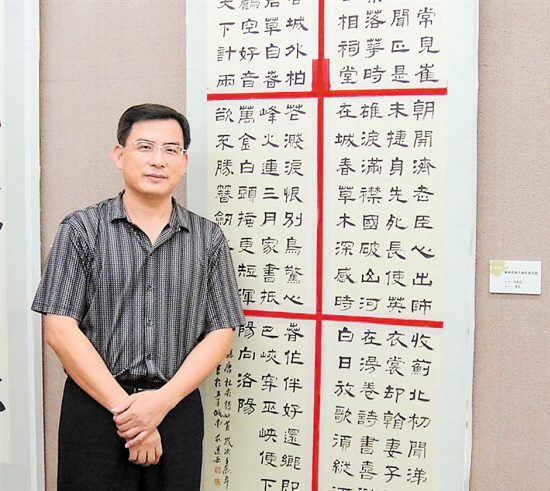 常見崔
聞正是
落華時
相祠堂
城外柏
草自春
空好音
天下計兩
朝開濟老臣心出師
未捷身先死長使英
雄淚滿襟國破山河
在城春草木深感時
華濺淚恨別鳥驚心
峰火連三月家書抵
萬金白頭搔更短渾
欲不勝簪劍
收薊北初聞涕
衣裳却看妻子
在漫卷詩書喜
白日放歌須縱酒
春作伴好還鄉即
巴峽穿巫峽便下
陽向洛陽